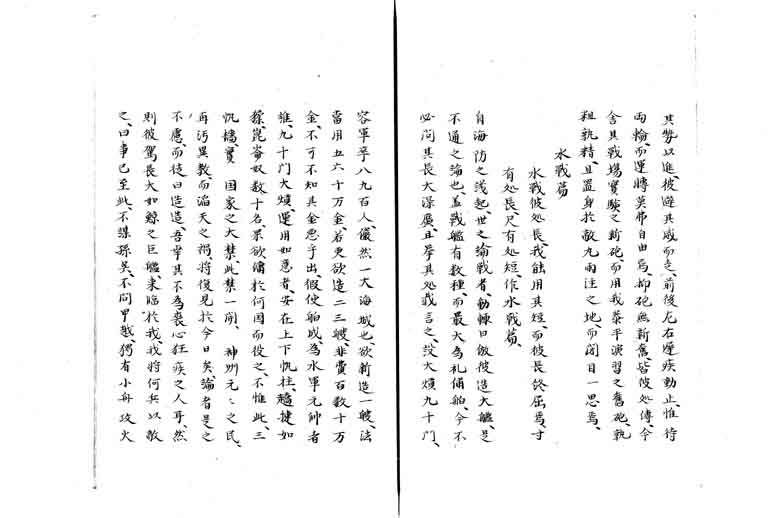 其勢以進、彼避其威而走、前後左右遲疾動止、惟待
両輪、而運轉莫弗自由焉、抑砲無新舊、皆彼処傳、今
舍其戰場實驗之新砲、而用我泰平演習之舊砲、孰
粗孰精、且置身於敵丸雨注之地、而闔目一思焉、
水戰篇
水戰彼処長、我能用其短、而彼長終屈焉、寸
有処長、尺有処短、作水戰篇、
自海防之議起、世之論戰者、動輙曰倣彼造大艦、是
不通之論也、蓋戰艦有数種、而最大為礼俑舶、今不
必問其長大深廣、且擧其処載言之、設大熕九十門、
容軍卒八九百人、儼然一大海城也、欲新造一艘、法
當用五六十万金、若更欲造二三艘、非費百数十万
金、不可不知其金悉乎出、假使舶成、為水軍元帥者
誰、九十門大熕、運用如意者、安在上下帆柱、趫捷如
猱、崑崙奴数十名、果欲傭於何国而役之、不惟此、三
帆檣、實 国家之大禁、此禁一開、 神州元〻之民、
再汚異教、而滔天之禍、將復見於今日矣、論者是之
不慮、而徒曰造造、吾宰其不為喪心狂疾之人耳、然
則彼駕長大如鯨之巨艦、来臨於我、我將何兵以敵
之、曰事已至此、不謀孫吴、不問甲越、獨有小舟攻火